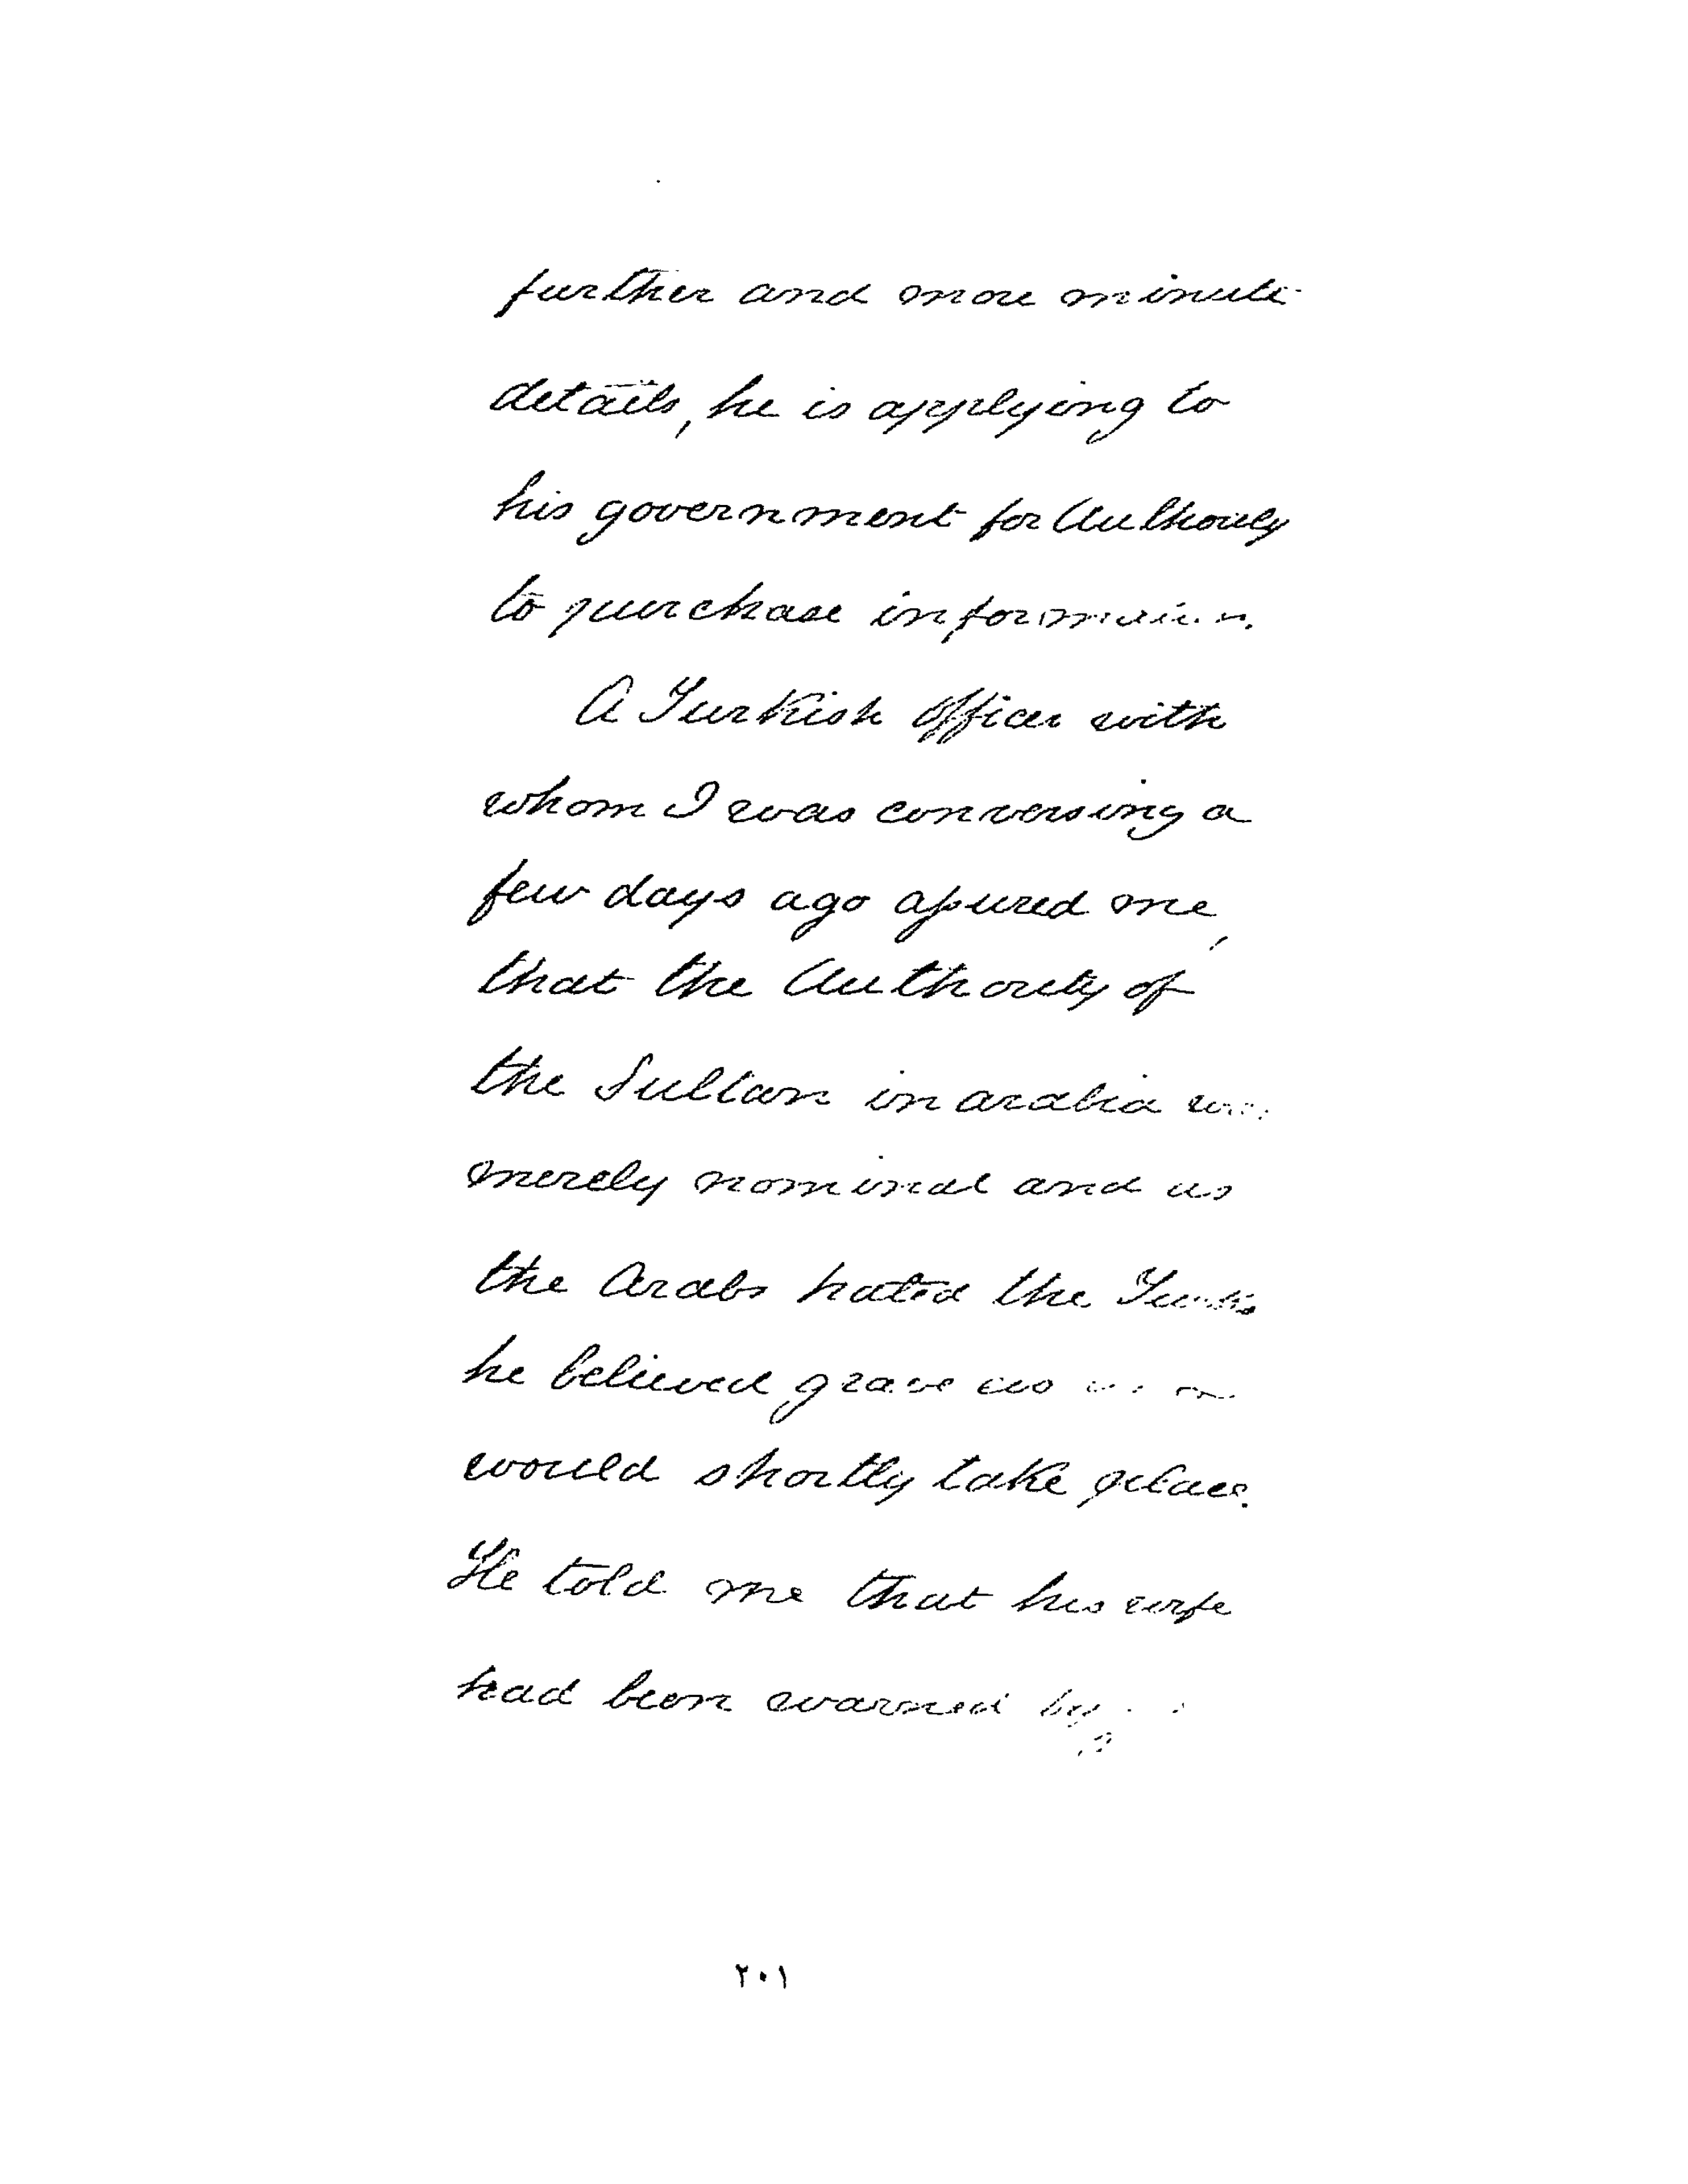 further and more minute
details, he is applying to
his government for Authority
to purchase information.
A Turkish Officer with
whom I was conversing a
few days ago assured me,
that the Authority of
the Sultan in arabia was
merely nominal and as
the Arabs hated the Turks
he believed grave
would shortly take place.
He told me that his wife
had been warned by
٢٠١